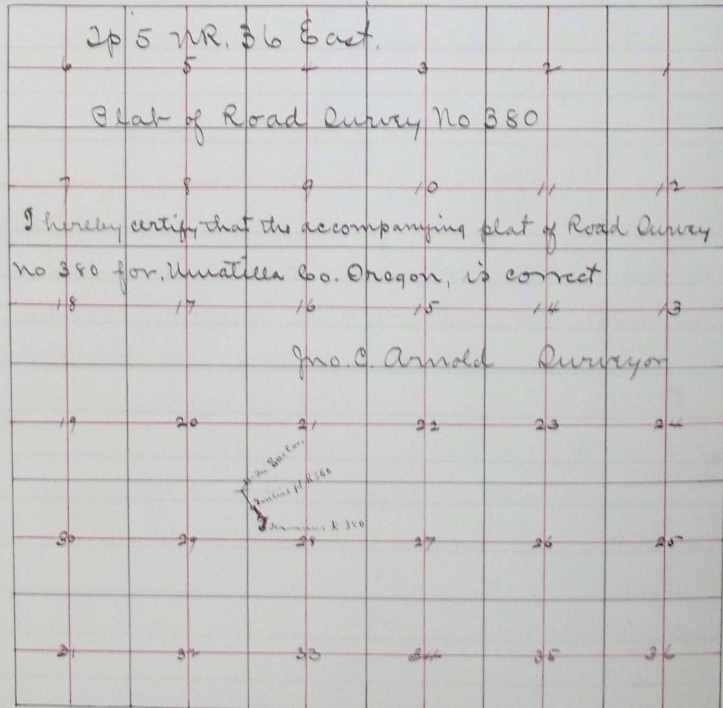 Tp 5 N R. 36 East.
6 5 4 3 2 1
Plat of Road Survey No 380
7 8 9 10 11 12
I hereby certify that the accompanying plat of Road Survey
No 380 for. Umatilla Co. Oregon, is correct
18 17 16 15 14 13
Jno. C. Arnold Surveyor
19 20 21 22 23 24
Terminus R 380
30 29 28 27 26 25
31 32 33 34 35 36